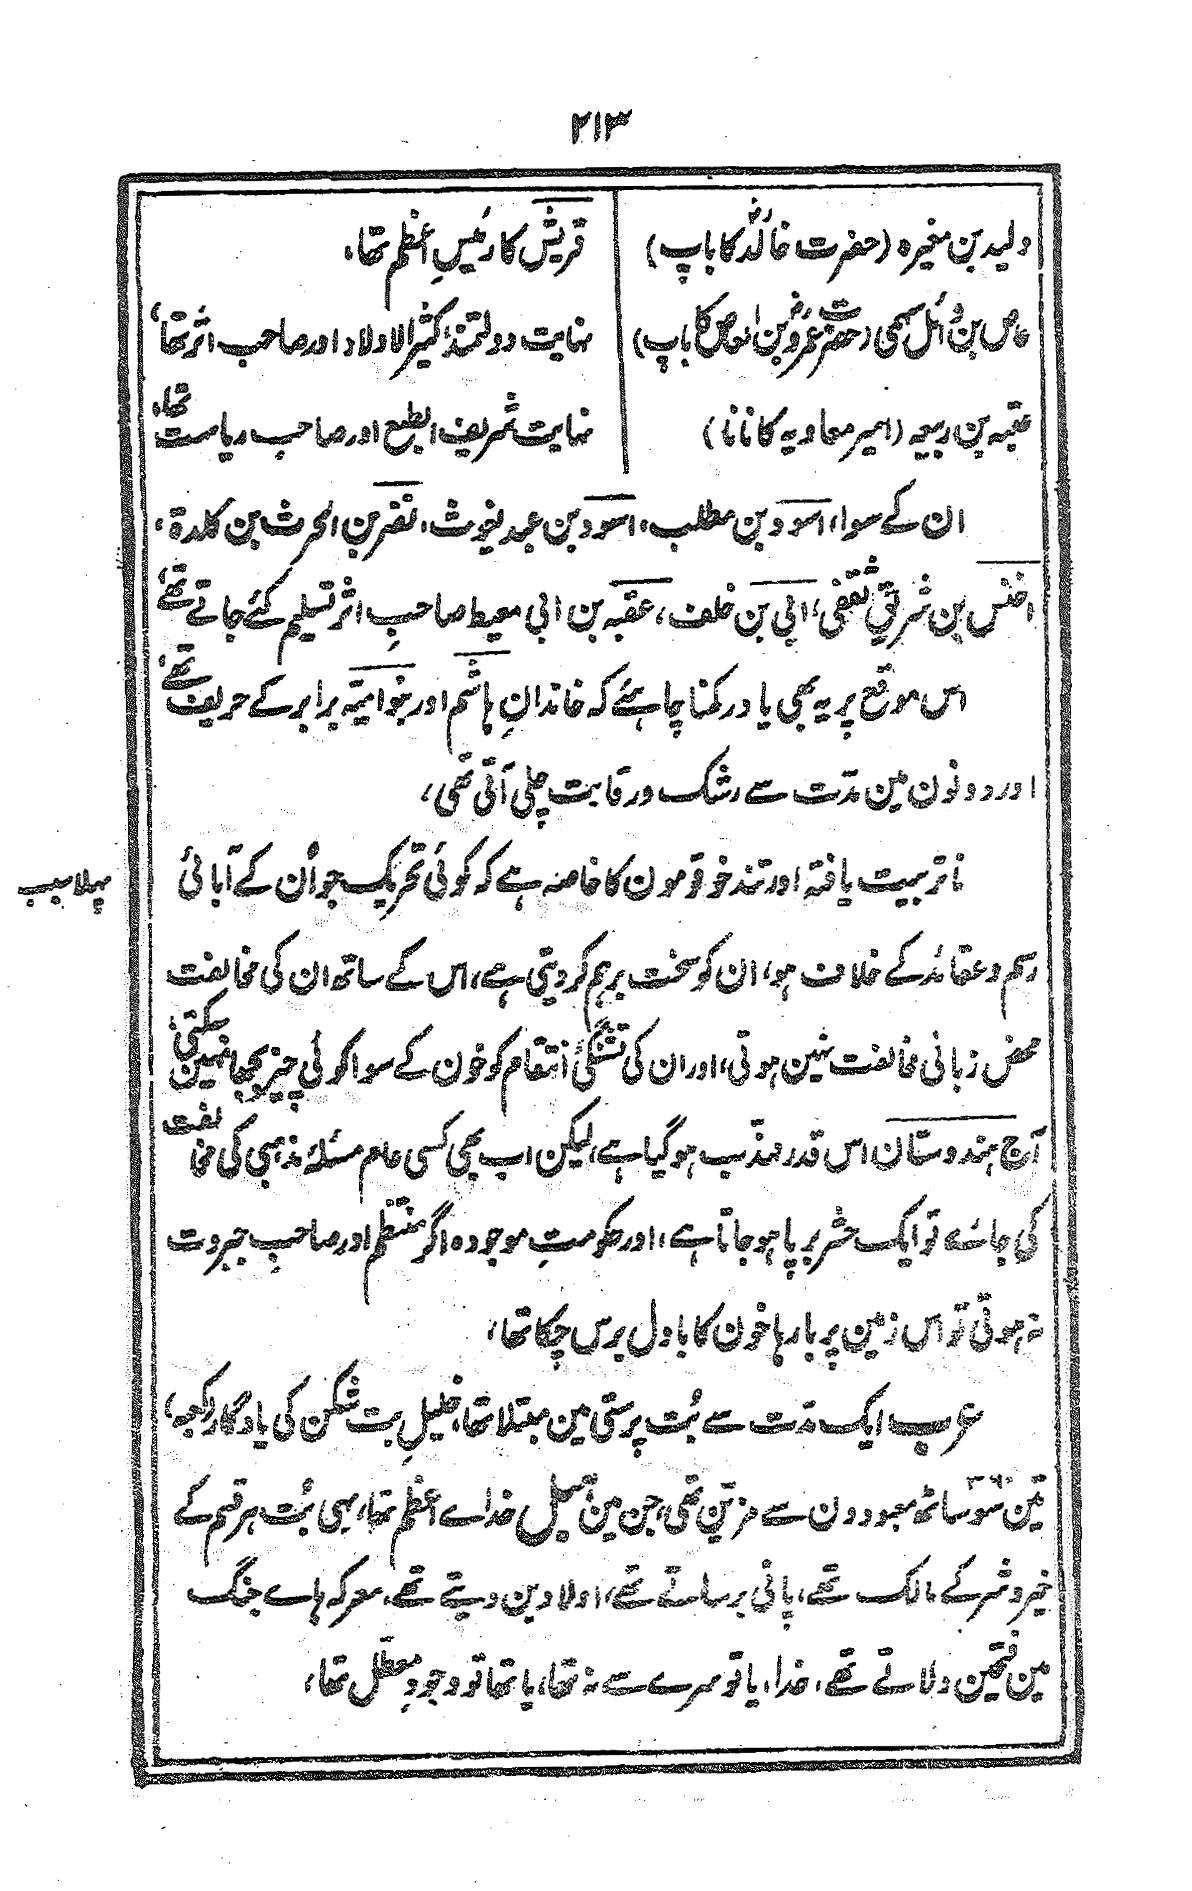 ۲۱۳
ولید بن مغیرہ (حضرت خالدؓ کا باپ) قریش کا رئیسِ اعظم تھا،
عاص بن وائل سہمی (حضرت عمروؓ بن العاص کا باپ) نہایت دولتمند، کثیر الاولاد اور صاحب اثر تھا،
عتبہ بن ربیعہ (امیر معاویہ کا نانا) نہایت شریف الطبع اور صاحب ریاست تھا،
ان کے سوا، اسود بن مطلب، اسود بن عبد یغوث، نضر بن الحرث بن کلدۃ،
اخنس بن شریق ثقفی، ابی بن خلف، عقبہ بن ابی معیط صاحبِ اثر تسلیم کئے جاتے تھے،
اس موقع پر یہ بھی یاد رکھنا چاہئے کہ خاندانِ ہاشم اور بنو امیّہ برابر کے حریف تھے،
اور دونون مین مدّت سے رشک و رقابت چلی آتی تھی،
ناتربیت یافتہ اور تند خو قومون کا خاصہ ہے کہ کوئی تحریک جو اُن کے آبائی
پہلا سبب
رسم و عقائد کے خلاف ہو، ان کو سخت برہم کر دیتی ہے، اس کے ساتھ ان کی مخالفت
محض زبانی مخالفت نہین ہوتی، اور ان کی تشنگیٔ انتقام کو خون کے سوا کوئی چیز بجھا نہین سکتی،
آج ہندوستان اس قدر مہذّب ہو گیا ہے، لیکن اب بھی کسی عام مسئلۂ مذہبی کی مخالفت
کی جائے تو ایک حشر برپا ہو جاتا ہے، اور حکومتِ موجودہ اگر منتظم اور صاحبِ جبروت
نہ ہوتی تو اس زمین پر بارہا خون کا بادل برس چکا تھا،
عرب ایک مدّت سے بُت پرستی مین مبتلا تھا، خلیلِ بت شکن کی یادگار (کعبہ)،
تین سو ساٹھ ۳۶۰ معبودون سے مزیّن تھی، جن مین ہُبل خدائے اعظم تھا، یہی بُت ہر قسم کے
خیر و شر کے مالک تھے، پانی برساتے تھے، اولادین دیتے تھے، معرکہ ہائے جنگ
مین فتحین دلاتے تھے، خدا، یا تو سرے سے نہ تھا، یا تھا تو وجودِ معطّل تھا،